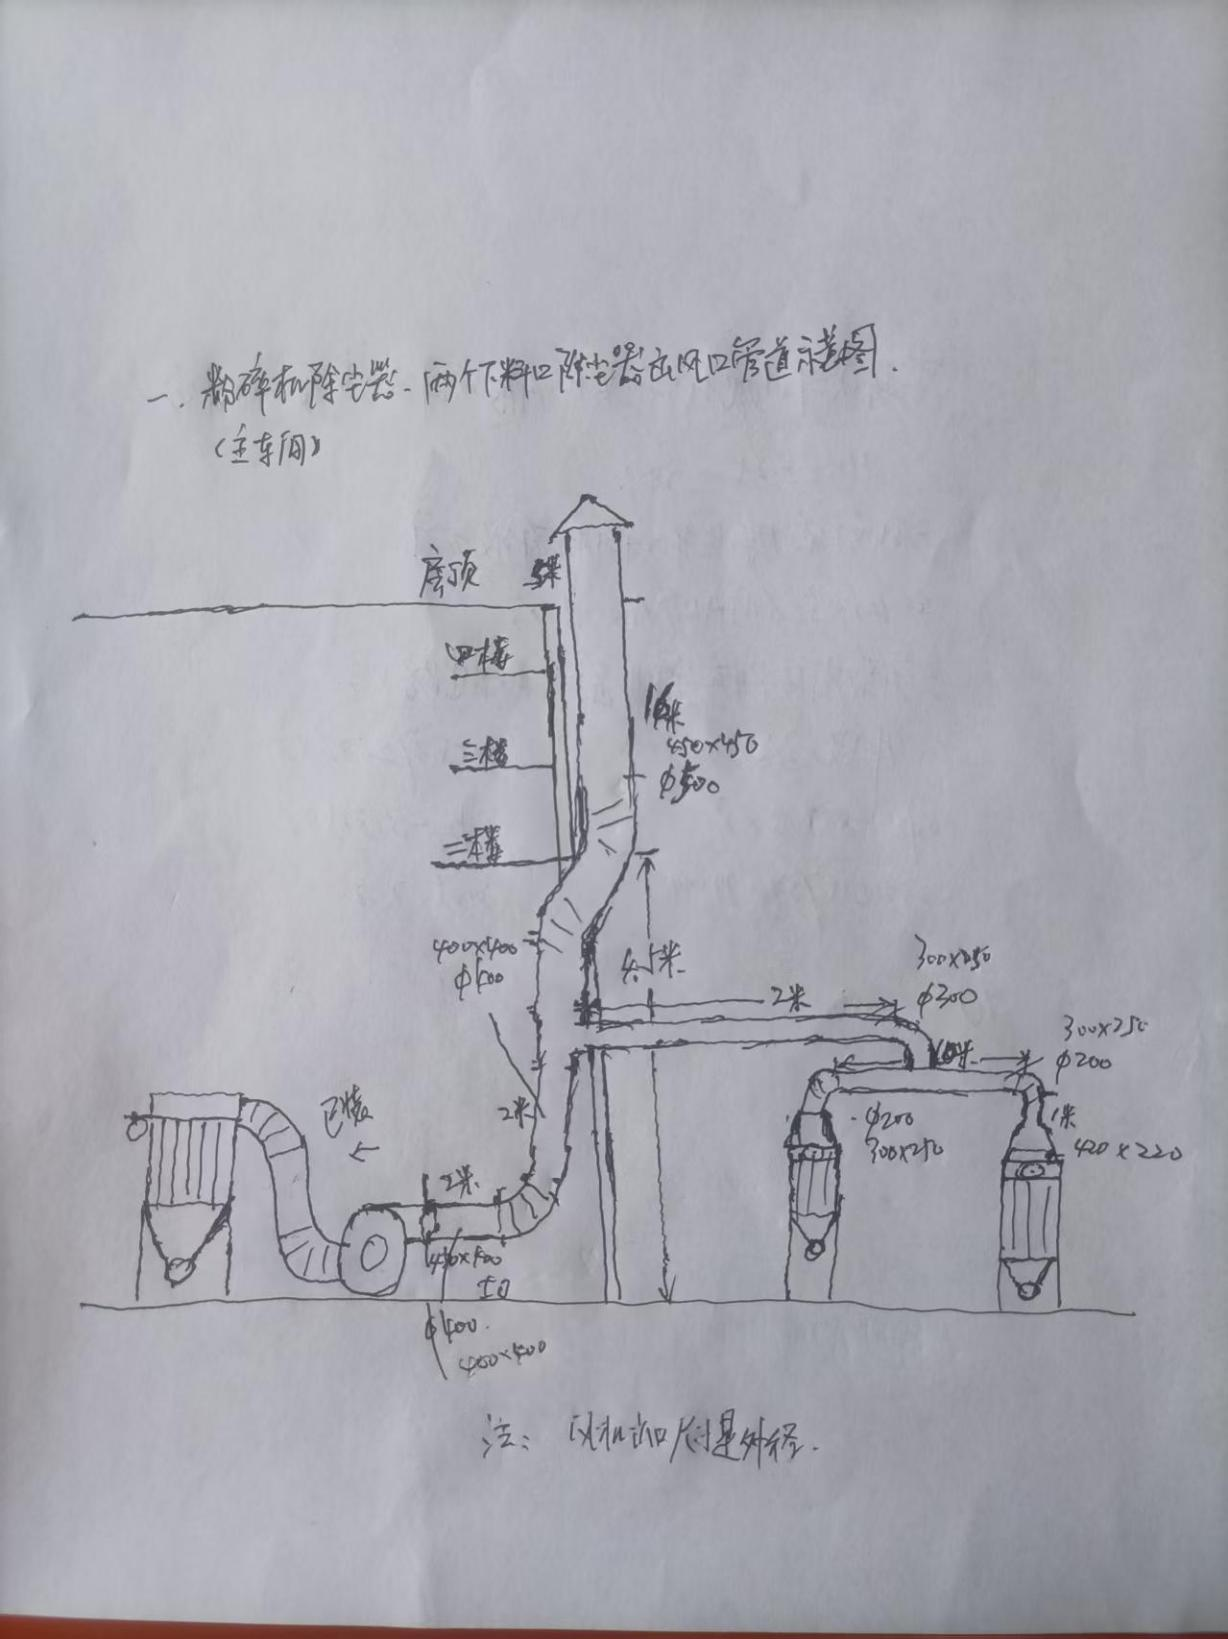 一. 粉碎机除尘器. 两个下料口除尘器出风口管道示意图.
(主车间)
房顶
5米
四楼
三楼
二楼
16米
450×450
φ500
400×400
φ400
4.5米
2米
300×250
φ300
300×250
φ200
米
φ200
300×250
1米
420×220
已装
2米
2米
φ400.
400×400
注: 风机出口尺寸是外径.